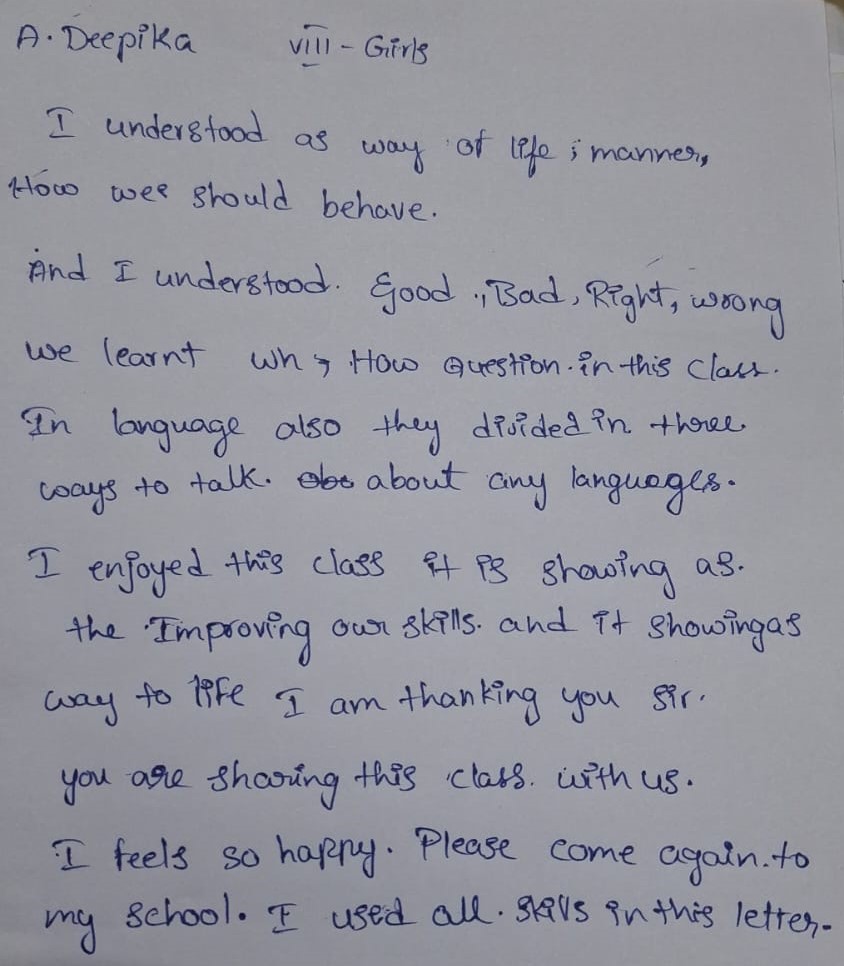 A. Deepika VIII - Girls
I understood as way of life ; manner,
How wee should behave.
And I understood. Good ., Bad, Right, wrong
we learnt wh, How Question. in this class.
In language also they divided in three
ways to talk. about any languages.
I enjoyed this class it is showing as.
the Improving our skills. and it showing as
way to life I am thanking you sir.
you are sharing this class. with us.
I feels so happy. Please come again. to
my school. I used all. skills in this letter.